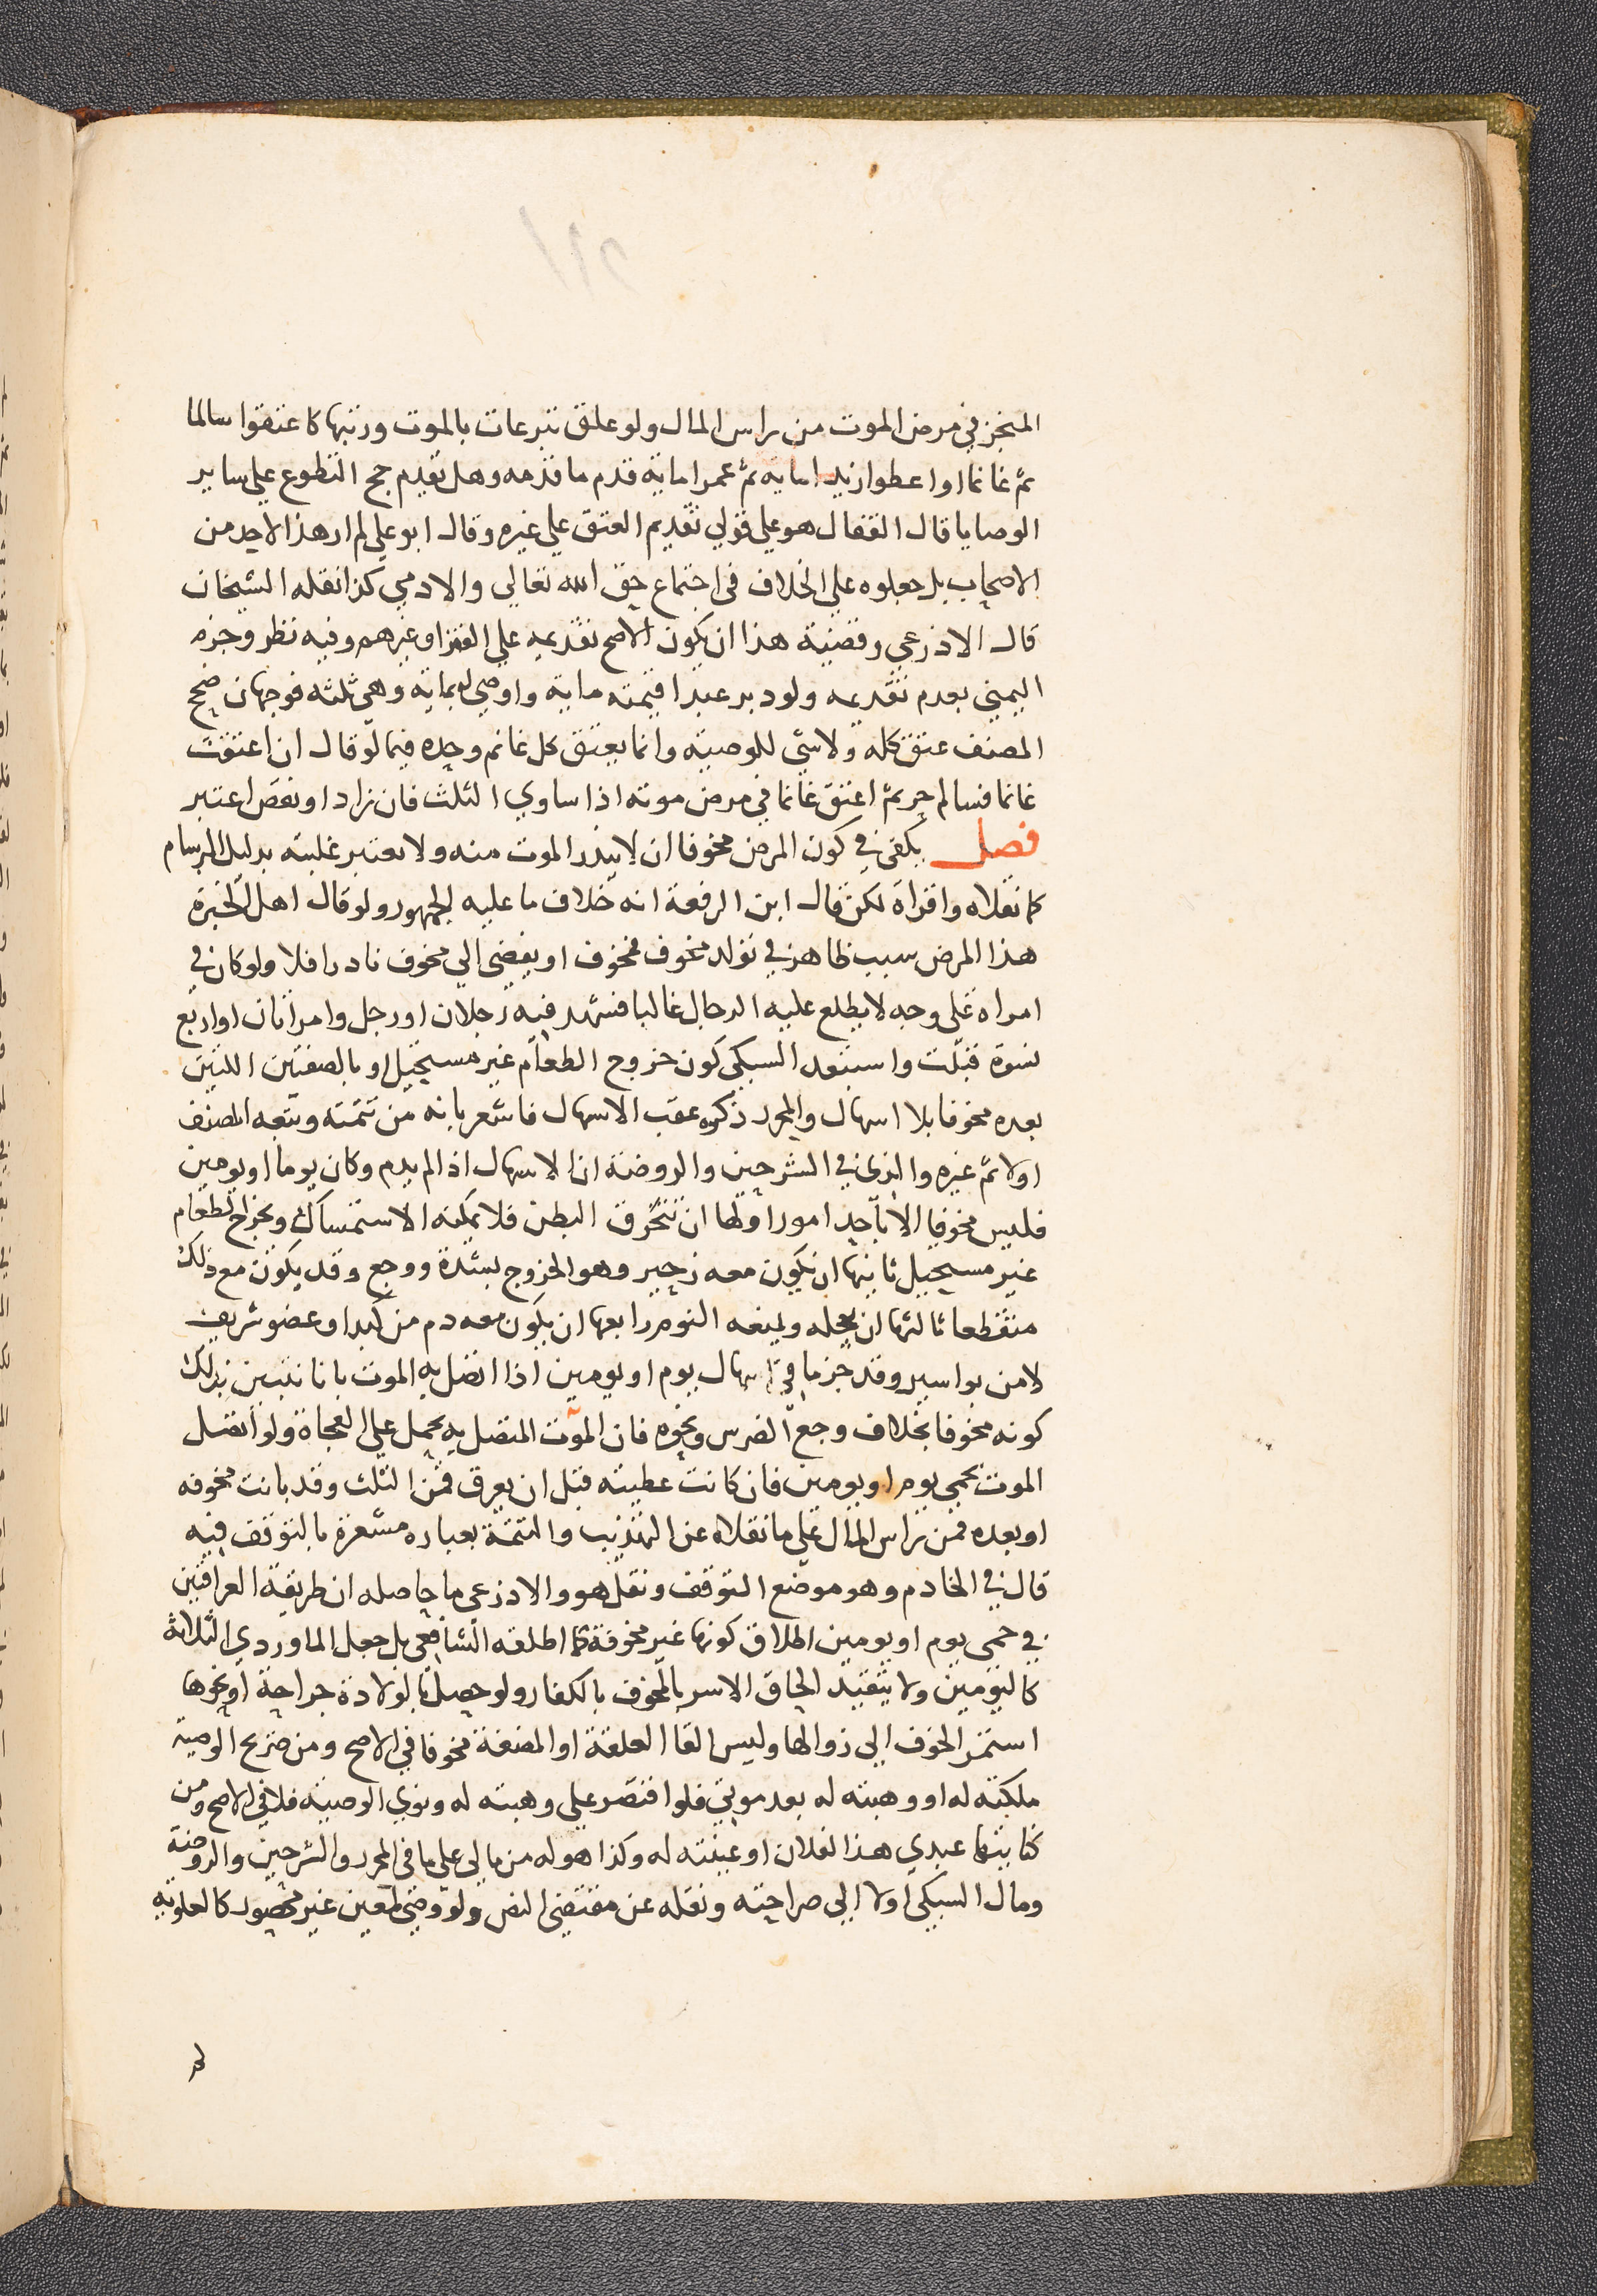 المنجز في مرض الموت من راس المال ولو علق تبرعات بالموت ورتبها كاعتقوا سالما
ثم غانما او اعطوا زيدا ماية ثم عمرا ماية قدم ما قدمه وهل تقدم حج التطوع على ساير
الوصايا قال القفال هو على قولي تقديم العتق على غيره وقال ابو علي لم ار هذا لاحد من
الاصحاب بل جعلوه على الخلاف في اجتماع حق الله تعالى والادمي كذا نقله الشيخان
قال الاذرعي وقضية هذا ان يكون الاصح تقديمه على الفقرا وغيرهم وفيه نظر وجزم
اليمني بعدم تقديمه ولو دبر عبدا قيمته ماية واوصى له بماية وهي ثلثه فوجهان صحح
المصنف عتق كله ولا شي للوصية وانما يعتق كل غانم وحده فيما لو قال ان اعتقت
غانما فسالم حر ثم اعتق غانما في مرض موته اذا ساوي الثلث فان زاد او نقص اعتبر
فصل يكفي في كون المرض مخوفا ان لا يندر الموت منه ولا يعتبر غلبته بدليل البرسام
كما نقلاه واقراه لكن قال ابن الرفعة انه خلاف ما عليه الجمهور ولو قال اهل الخبرة
هذا المرض سبب ظاهر في تولد مخوف فمخوف او يفضي الي مخوف نادرا فلا ولو كان في
امراه على وجه لا يطلع عليه الرجال غالبا فشهد فيه رجلان او رجل وامراتان او اربع
نسوة قبلت واستبعد السبكي كون خروج الطعام غير مستحيل او بالصفتين اللتين
بعده مخوفا بلا اسهال والمحرر ذكره عقب الاسهال فاشعر بانه من تتمته وتبعه المصنف
اولا ثم غيره والذي في الشرحين والروضة ان الاسهال اذا لم يدم وكان يوما او يومين
فليس مخوفا الا باحد امور اولها ان تنخرق البطن فلا يمكنه الاستمساك ويخرج الطعام
غير مستحيل ثانيها ان يكون معه زحير وهو الخروج بشدة ووجع وقد يكون مع ذلك
متقطعا ثالثها ان يعجله ويمنعه النوم رابعها ان يكون معه دم من كبد او عضو شريف
لا من بواسير وقد جزما في اسهال يوم او يومين اذا اتصل به الموت بانا نتبين بذلك
كونه مخوفا بخلاف وجع الضرس ونحوه فان الموت المتصل به يحمل على الفجاة ولو اتصل
الموت بحمى يوم او يومين فان كانت عطيته قبل ان يعرق فمن الثلث وقد بانت مخوفه
او بعده فمن راس المال على ما نقلاه عن التهذيب والتتمة بعباره مشعرة بالتوقف فيه
قال في الخادم وهو موضع التوقف ونقل هو والاذرعي ما حاصله ان طريقة العراقيين
في حمى يوم او يومين اطلاق كونها غير مخوفة كما اطلقه الشافعي بل جعل الماوردي الثلاثة
كاليومين ولا يتقيد الحاق الاسر بالمخوف بالكفار ولو حصل بالولادة جراحة او نحوها
استمر الخوف الى زوالها وليس القا العلقة او المضغة مخوفا في الاصح ومن صريح الوصية
ملكته له او وهبته له بعد موتي فلو اقتصر على وهبته له ونوي الوصية فلا في الاصح ومن
كنايتها عبدي هذا لفلان او عينته له وكذا هو له من مالي على ما في المحرر والشرحين والروضة
ومال السبكي اولا الى صراحته ونقله عن مقتضى النص ولو وصى لمعين غير محصور كالعلوية